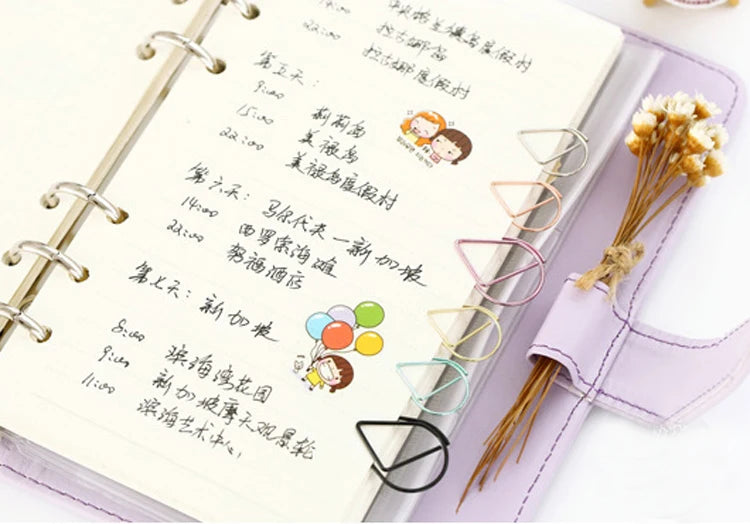 14:00 度假村
22:00 拉古娜岛
拉古娜度假村
第五天:
9:00 莉莉岛
15:00 美禄岛
22:00 美禄岛度假村
第六天: 马尔代夫—新加坡
14:00 西罗索海滩
22:00 努福酒店
第七天: 新加坡
8:00 滨海湾花园
9:00 新加坡摩天观景轮
11:00 滨海艺术中心